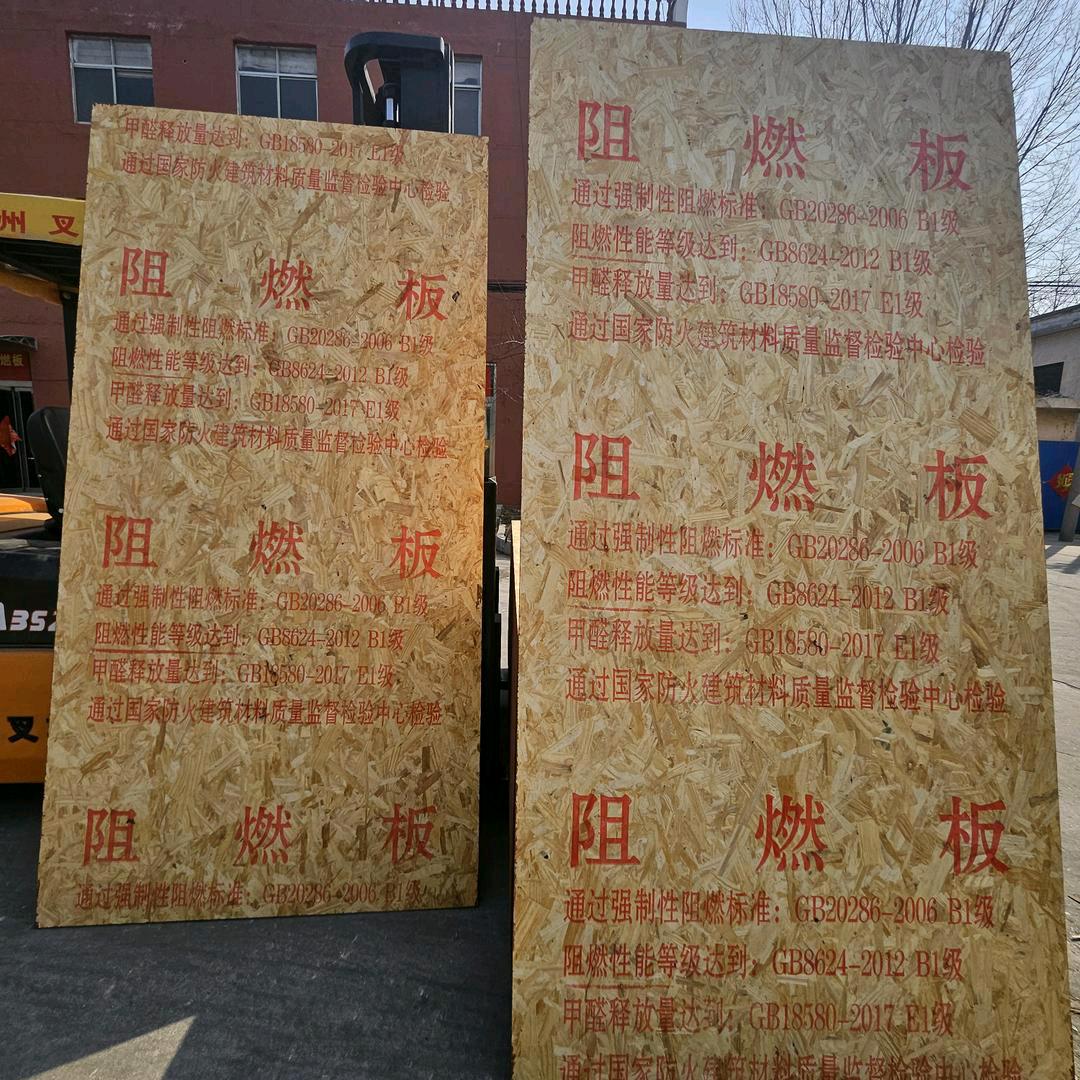 甲醛释放量达到：GB18580-2017 E1级
通过国家防火建筑材料质量监督检验中心检验
阻燃板
通过强制性阻燃标准：GB20286-2006 B1级
阻燃性能等级达到：GB8624-2012 B1级
甲醛释放量达到：GB18580-2017 E1级
通过国家防火建筑材料质量监督检验中心检验
阻燃板
通过强制性阻燃标准：GB20286-2006 B1级
阻燃性能等级达到：GB8624-2012 B1级
甲醛释放量达到：GB18580-2017 E1级
通过国家防火建筑材料质量监督检验中心检验
阻燃板
通过强制性阻燃标准：GB20286-2006 B1级
阻燃板
通过强制性阻燃标准：GB20286-2006 B1级
阻燃性能等级达到：GB8624-2012 B1级
甲醛释放量达到：GB18580-2017 E1级
通过国家防火建筑材料质量监督检验中心检验
阻燃板
通过强制性阻燃标准：GB20286-2006 B1级
阻燃性能等级达到：GB8624-2012 B1级
甲醛释放量达到：GB18580-2017 E1级
通过国家防火建筑材料质量监督检验中心检验
阻燃板
通过强制性阻燃标准：GB20286-2006 B1级
阻燃性能等级达到：GB8624-2012 B1级
甲醛释放量达到：GB18580-2017 E1级
通过国家防火建筑材料质量监督检验中心检验
州 叉
燃板
A35
叉